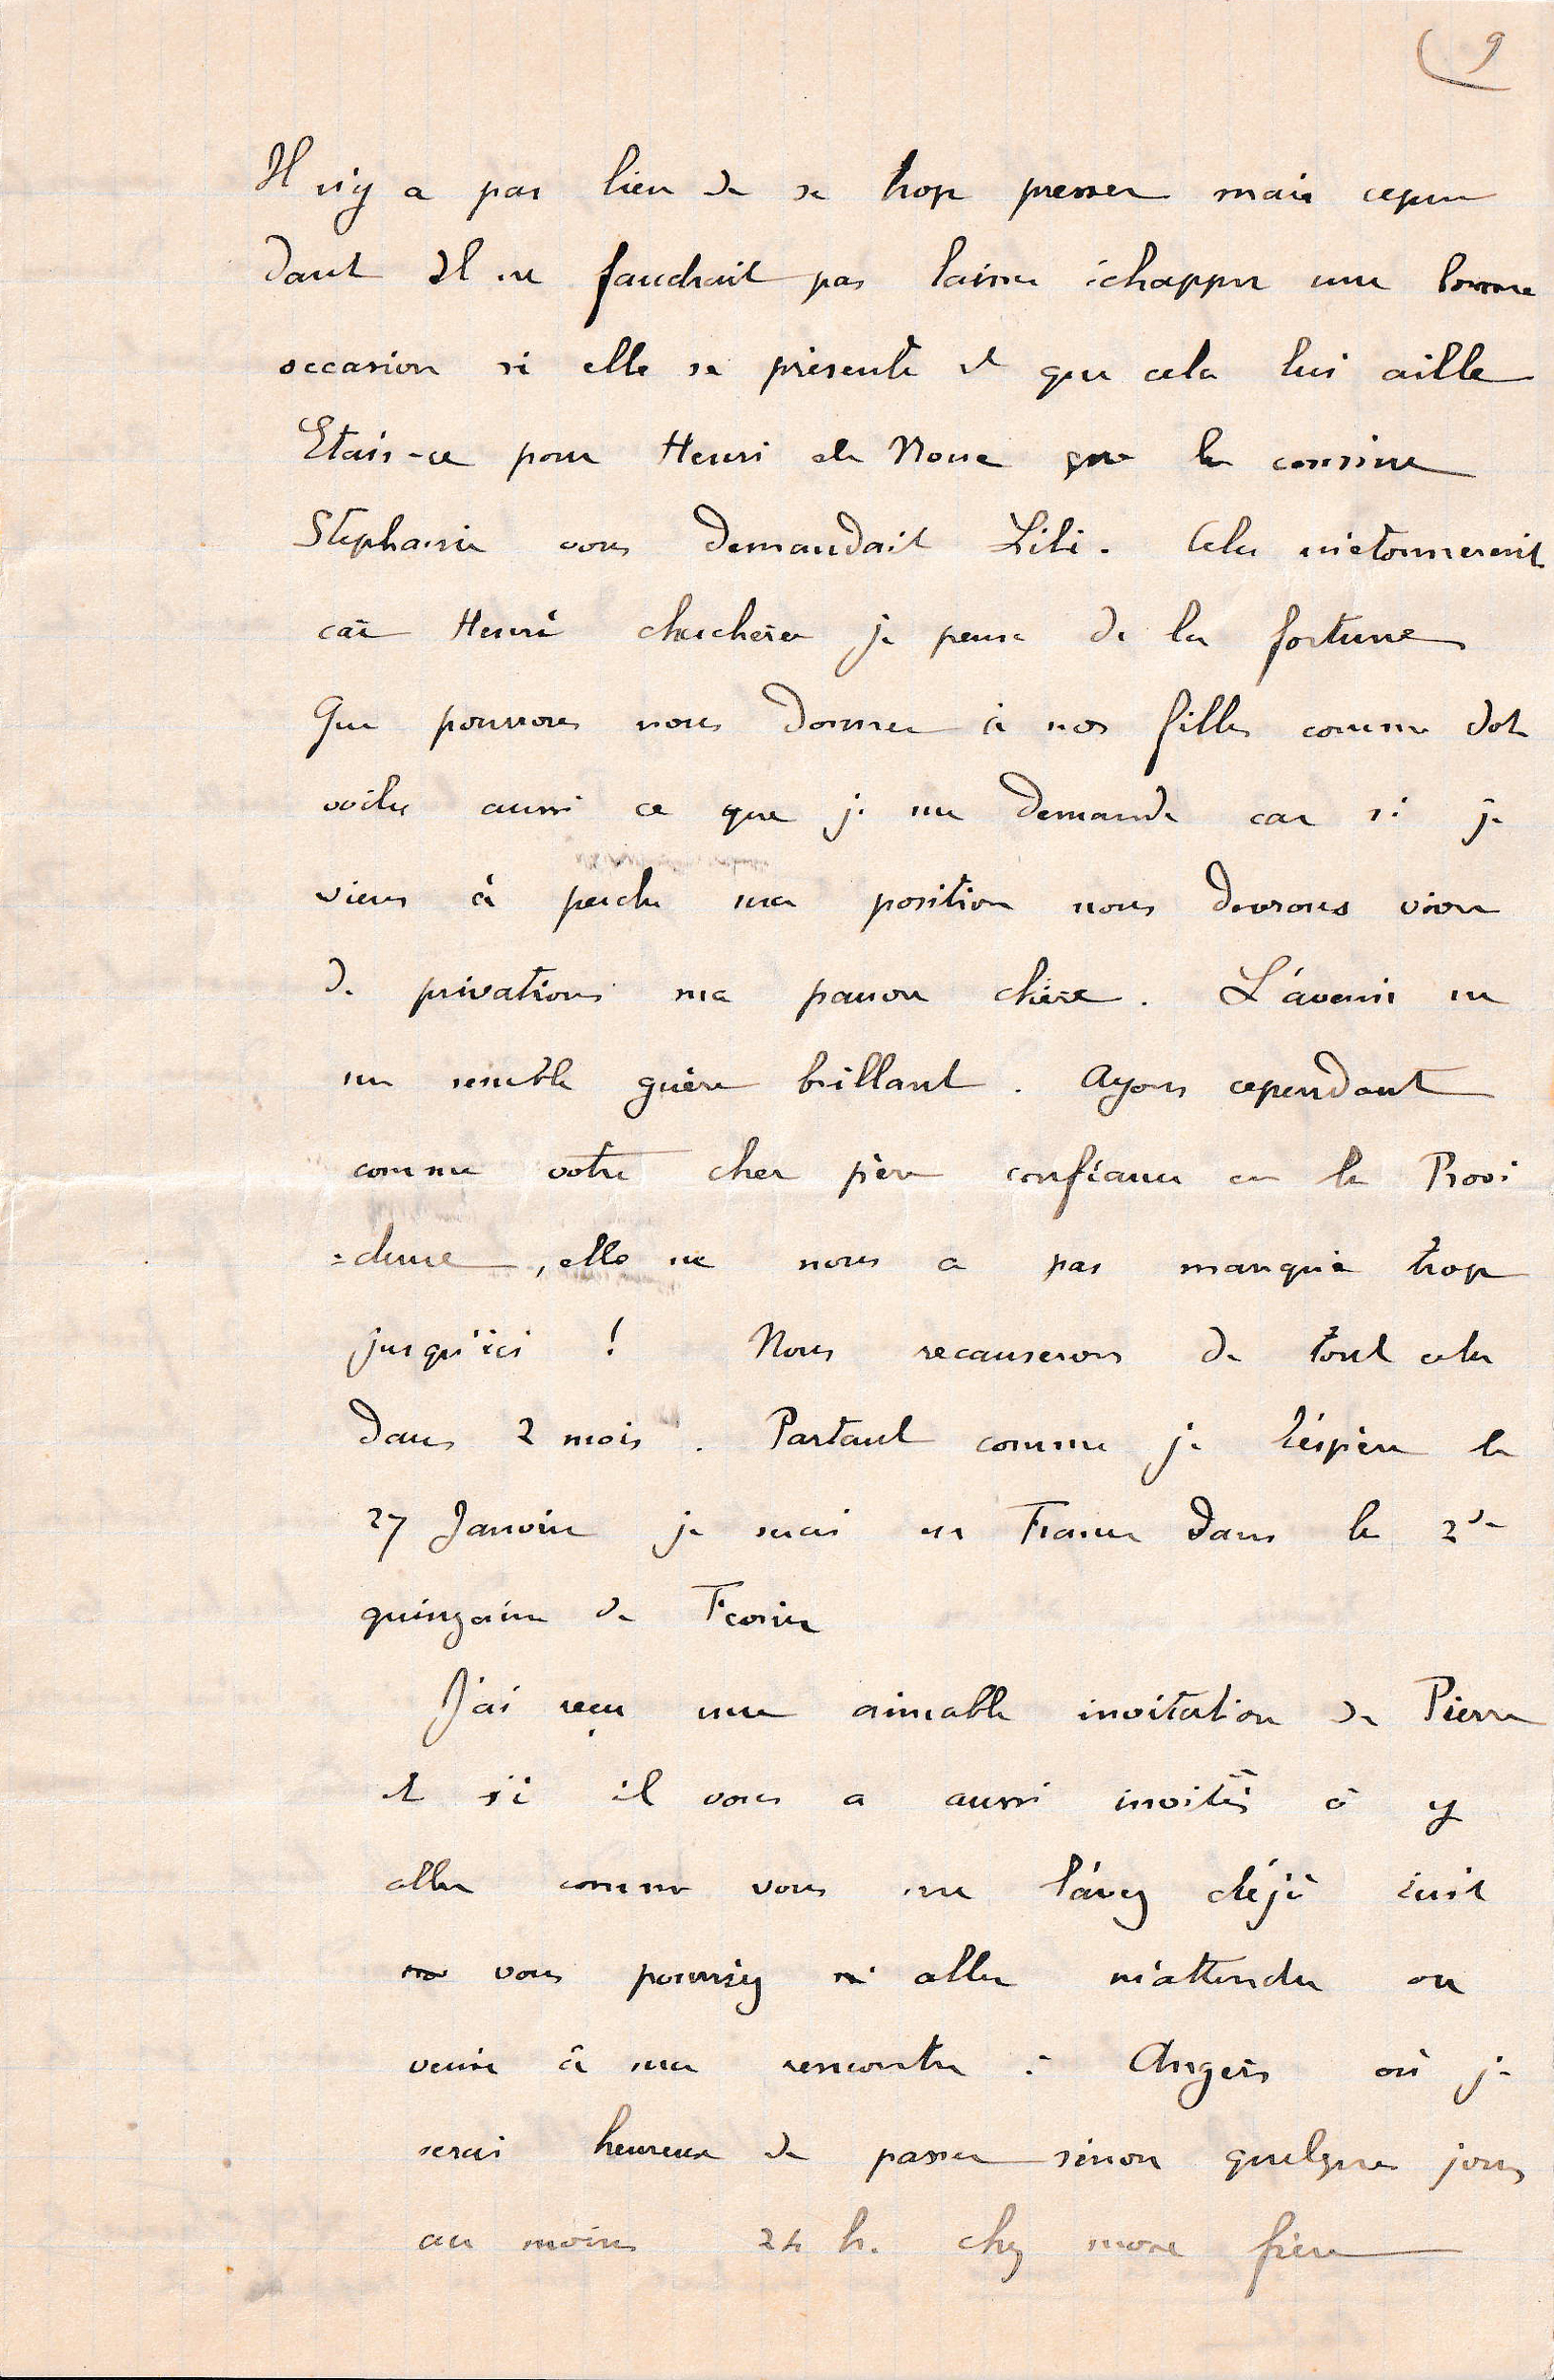 9
Il n'y a pas lieu de se trop presser mais cepen
dant il ne faudrait pas laisser échapper une bonne
occasion si elle se présente et que cela lui aille
Etais-ce pour Henri de Noue que la cousine
Stephanie vous demandait Lili. Cela m'etonnererait
car Henri cherchera je pense de la fortune
Que pouvons nous donner à nos filles comme dot
voila aussi ce que je me demande car si je
viens à perdre ma position nous devrons vivre
de privations ma pauvre chère. L'avenir ne
me semble guère brillant. Ayons cependant
comme votre cher père confiance en la Provi
=dence, elle ne nous a pas manqué trop
jusqu'ici ! Nous recauserons de tout cela
dans 2 mois. Partant comme je l'éspère le
27 Janvier je serai en France dans la 2de
quinzaine de Fevrier
J'ai reçu une aimable invitation de Pierre
et si il vous a aussi invités à y
aller comme vous me l'avez déjà écrit
vous pourriez aller m'attendre ou
venir à ma rencontre à Angers où je
serai heureux de passer sinon quelques jours
au moins 24 h. chez mon frère